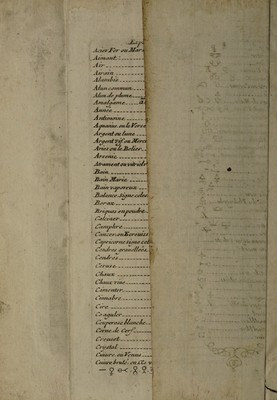 Acier Fer ou Mar
Aimant
Air
Airain
Alambic
Alun commun
Alun de plume
Amalgame
Année
Antimoine
Aquarius, ou le Verse
Argent ou lune
Argent vif, ou Merc
Aries ou le Belier
Arsenic
Atrament ou vitriol
Bain
Bain Marie
Bain vaporeux
Balance signe celes
Borax
Briques en poudre
Calciner
Camphre
Cancer, ou l'Ecrevisse
Capricorne signe cel
Cendres gravellées
Cendres
Ceruse
Chaux
Chaux vive
Cimenter
Cinnabre
Cire
Coaguler
Couperose blanche
Corne de Cerf
Creuset
Crystal
Cuivre ou Venus
Cuivre brulé, ou